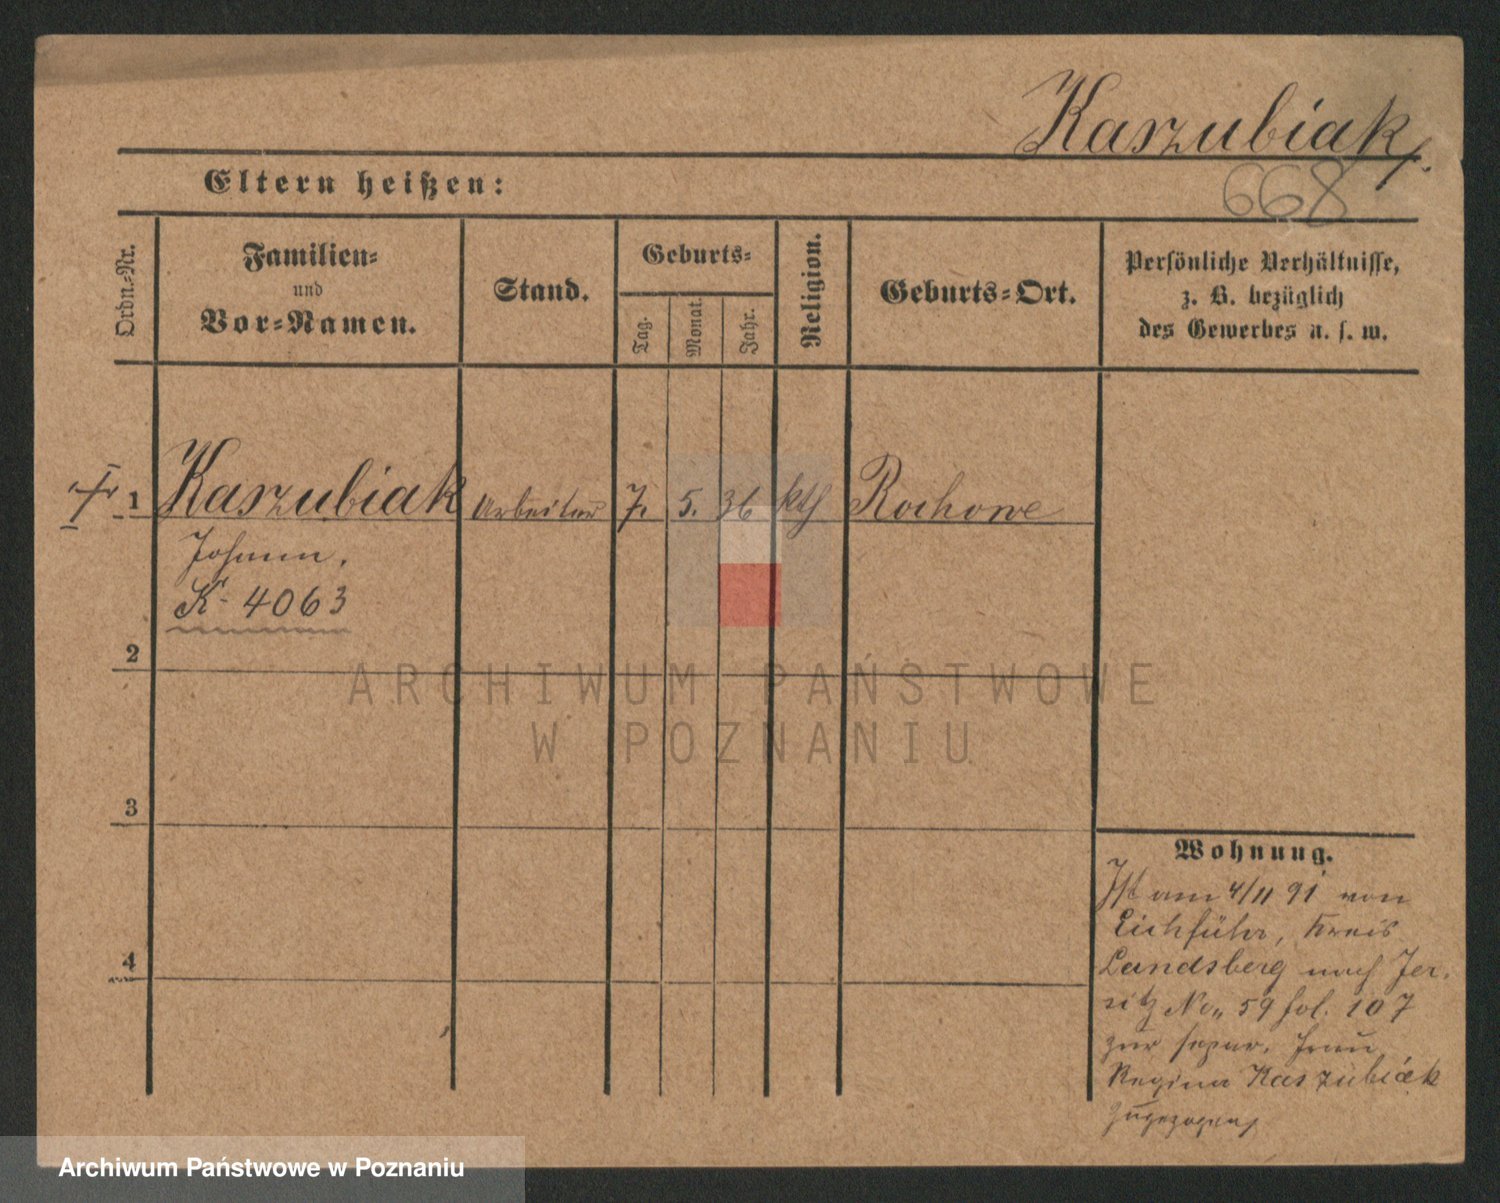 Kaszubiak
668
Eltern heißen:
Ordn.-Nr.
Familien-
und
Vor-Namen.
Stand.
Geburts-
Tag.
Monat.
Jahr.
Religion.
Geburts-Ort.
Persönliche Verhältnisse,
z. B. bezüglich
des Gewerbes u. s. w.
1 Kaszubiak Arbeiter 7. 5. 36 kth Rochowe
Johann.
K. 4063
2
ARCHIWUM PAŃSTWOWE
W POZNANIU
3
Wohnung.
Ist am 4/11 91 von
Eichführ, Kreis
Landsberg nach Jer-
sitz No. 59 fol. 107
zur separ. Frau
Regina Kaszubiak
zugezogen
4
Archiwum Państwowe w Poznaniu